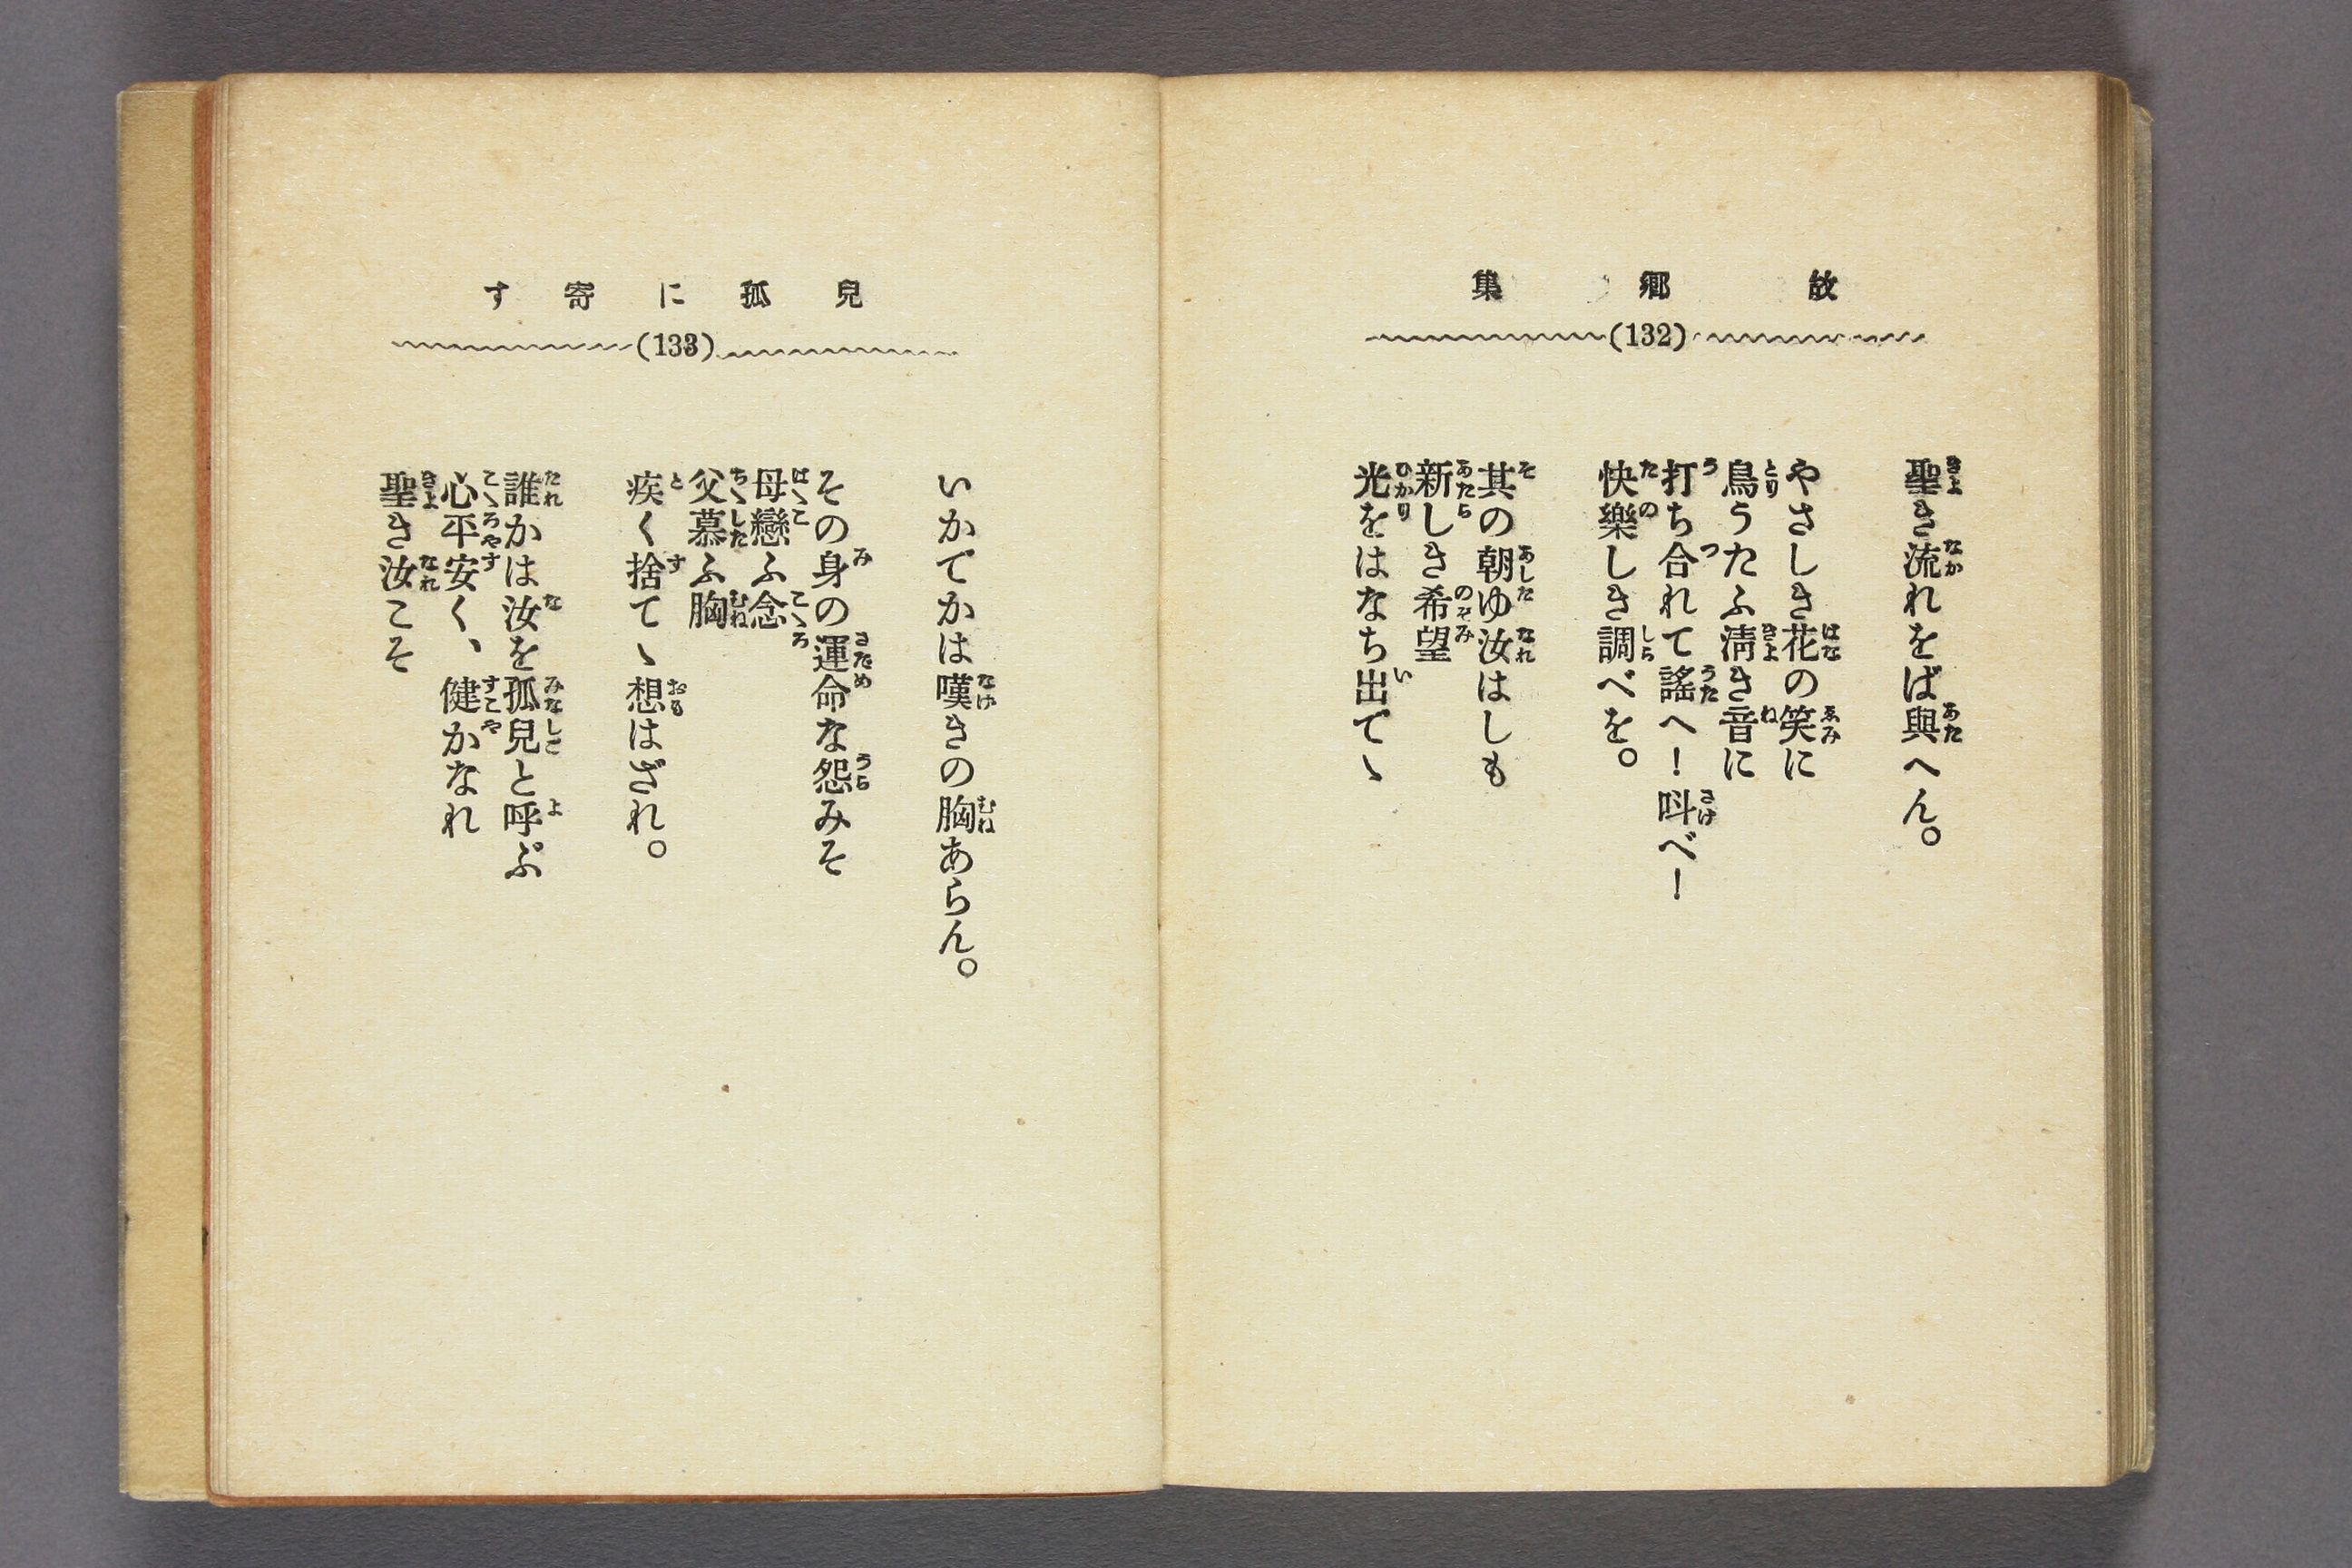 故鄕集
(132)
聖き流れをば與へん。
やさしき花の笑に
鳥うたふ淸き音に
打ち合れて謠へ！叫べー
快樂しき調べを。
其の朝ゆ汝はしも
新しき希望
光をはなち出でゝ
兒孤に寄す
(133)
いかでかは嘆きの胸あらん。
その身の運命な怨みそ
母戀ふ念
父慕ふ胸
疾く捨てゝ想はざれ。
誰かは汝を孤兒と呼ぶ
心平安く、健かなれ
聖き汝こそ